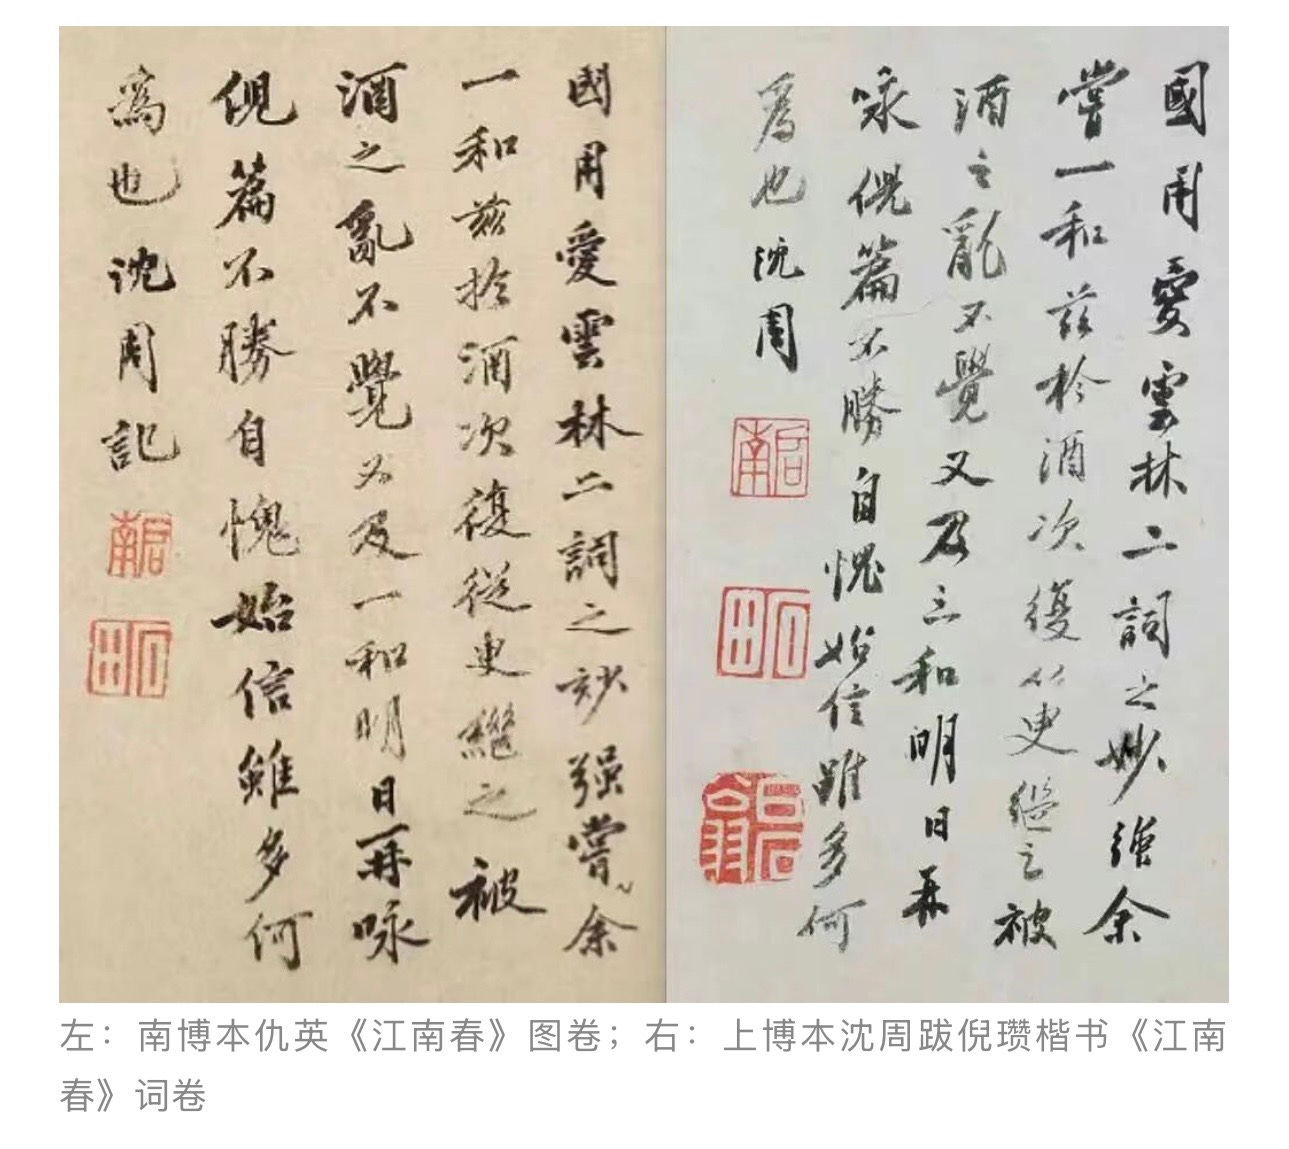 國用愛雲林二詞之妙强嘗余
一和兹於酒次復從臾繼之被
酒之亂不覺又及一和明日再咏
倪篇不勝自愧始信雖多何
為也沈周記
啟南
石田
國用愛雲林二詞之妙強余
嘗一和茲於酒次復从臾繼之被
酒之亂不覺又及三和明日再
咏倪篇不勝自愧始信雖多何
為也沈周
啟南
石田
左：南博本仇英《江南春》图卷；右：上博本沈周跋倪瓒楷书《江南
春》词卷